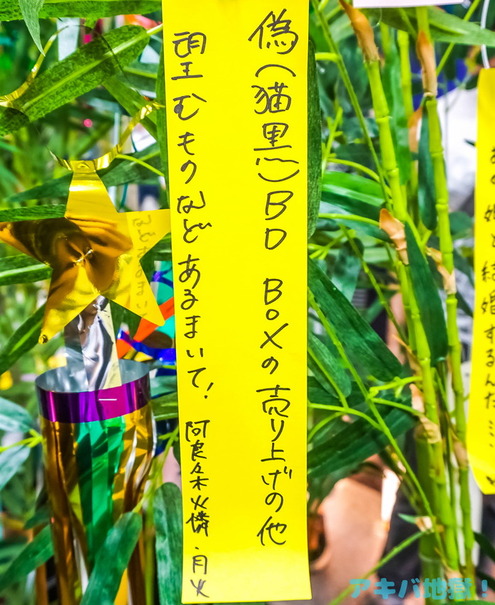 偽(猫黒)BD BOXの売り上げの他
望むものなどあるまいて!
阿良々木火憐・月火
と結婚するんだ…
アキバ地獄!